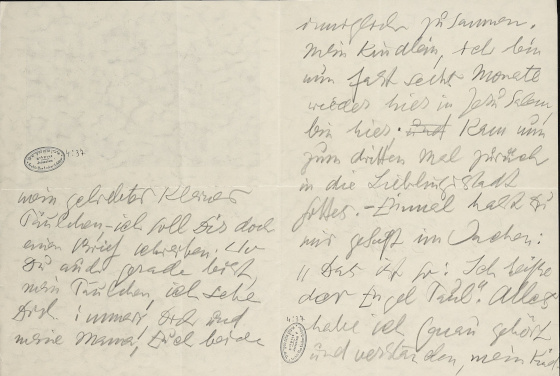 4:37
mein geliebter kleiner
Päulchen – ich soll Dir doch
einen Brief schreiben. Wo
Du auch gerade bist,
mein Päulchen, ich sehe
Dich immer, Dich und
meine Mama, Euch beide
inniglich zusammen.
Mein Kindlein, ich bin
nun fast sechs Monate
wieder hier in Jerusalem
bin hier. und Kam nun
zum dritten Mal zurück
in die Lieblingsstadt
Gottes. – Einmal hast Du
mir gesagt im
„Das ist so: Ich heiße
der Engel Paul". Alles
habe ich genau gehört
4:37
und verstanden, mein Kind